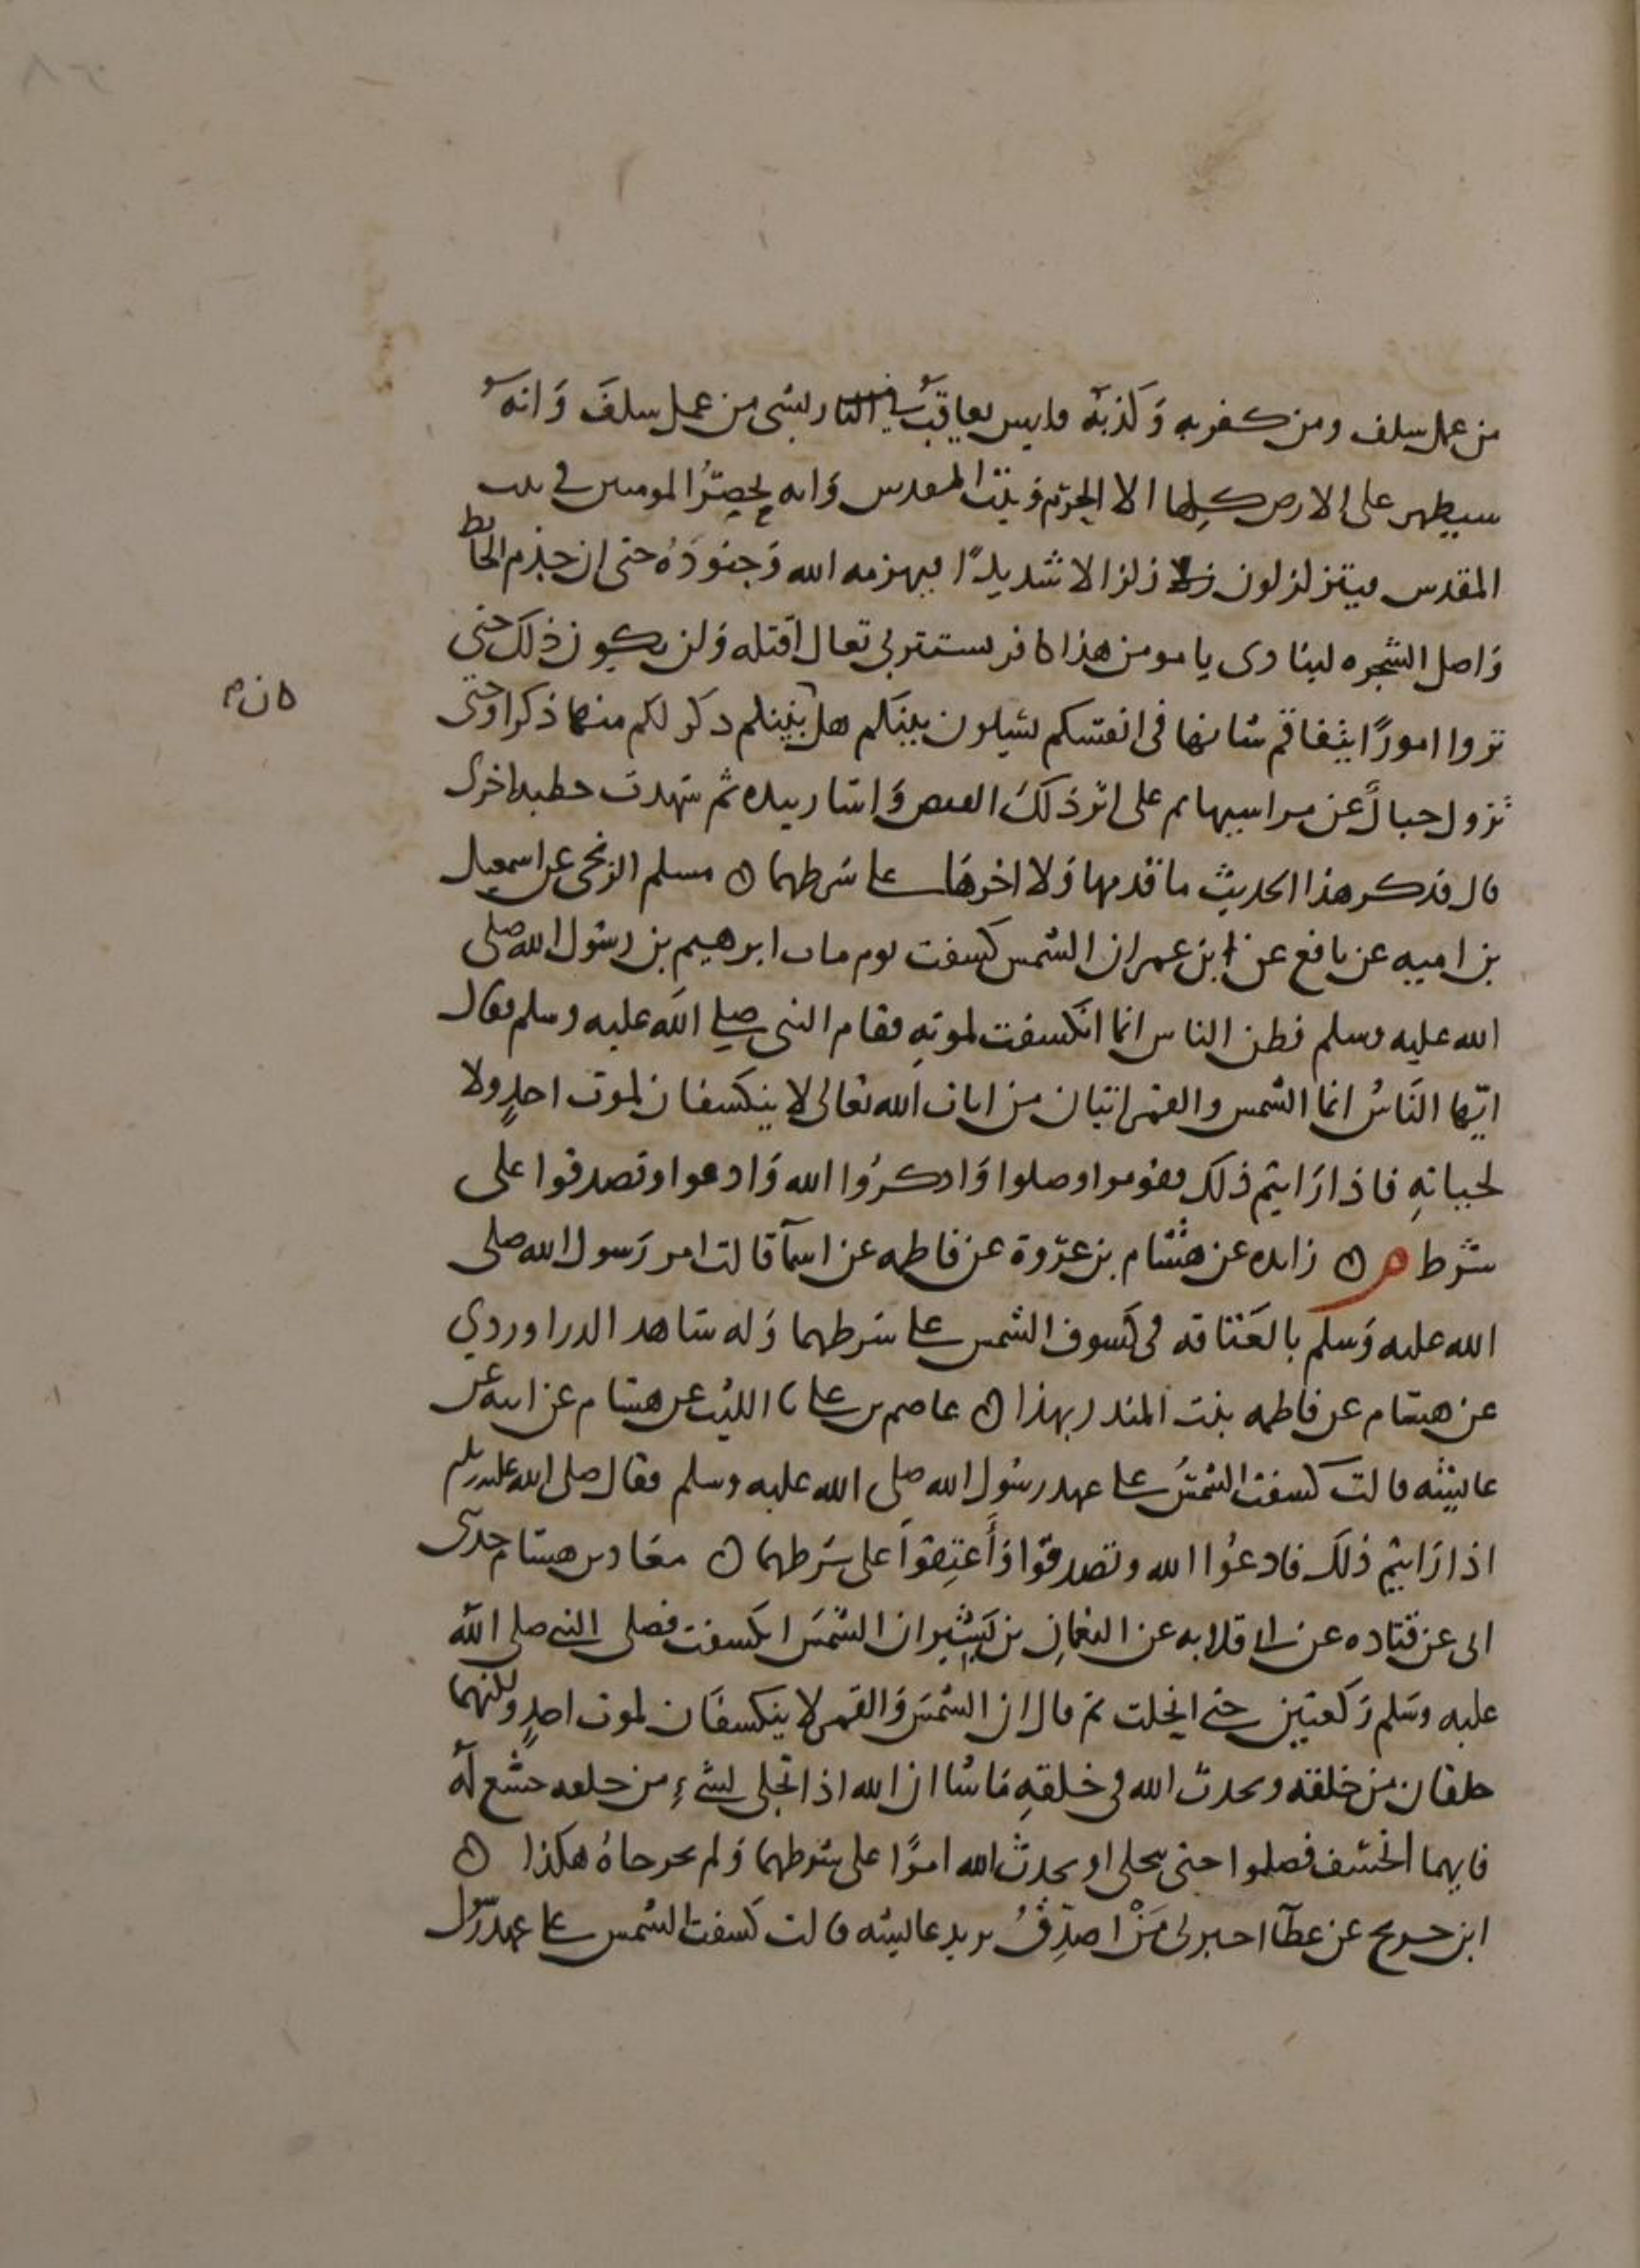 من عمل سلف ومن كفر به وكذبه فليس يعاقب في النار بشى من عمل سلف وانه
سيظهر على الارض كلها الا الحرم وبيت المقدس وانه يحصر المومنين في بيت
المقدس فيتزلزلون زلزالا شديدًا فيهزمه الله وجنوده حتى ان جذم الحائط
واصل الشجره لينادى يا مومن هذا كافر يستتر بي تعال اقتله ولن يكون ذلك حتى
تروا امورًا يتفاقم شانها فى انفسكم تسيلون بينكم هل نبيكم ذكر لكم منها ذكرا وحتى
تزول جبال عن مراسيها ثم على اثر ذلك القبض واشار بيده ثم شهدت خطبه اخرى
قال فذكر هذا الحديث ما قدمها ولا اخرها على شرطهما ه مسلم الزنجى عن اسمعيل
بن اميه عن نافع عن ابن عمر ان الشمس كسفت يوم مات ابرهيم بن رسول الله صلى
الله عليه وسلم فظن الناس انما انكسفت لموته فقام النبى صلى الله عليه وسلم فقال
ايها الناس انما الشمس والقمر ايتان من ايات الله تعالى لا ينكسفان لموت احدٍ ولا
لحياته فاذا رايتم ذلك فقوموا وصلوا واذكروا الله وادعوا وتصدقوا على
شرط م ه زايده عن هشام بن عروة عن فاطمه عن اسما قالت امر رسول الله صلى
الله عليه وسلم بالعتاقه فى كسوف الشمس على شرطهما وله شاهد الدراوردي
عن هشام عن فاطمه بنت المنذر بهذا ه عاصم بن على نا الليث عن هشام عن ابيه عن
عايشه قالت كسفت الشمس على عهد رسول الله صلى الله عليه وسلم فقال صلى الله عليه وسلم
اذا رايتم ذلك فادعوا الله وتصدقوا وأعتقوا على شرطهما ه معاذ بن هشام حدثنى
ابى عن قتاده عن ابي قلابه عن النعمان بن بشير ان الشمس انكسفت فصلى النبي صلى الله
عليه وسلم ركعتين حتى انجلت ثم قال ان الشمس والقمر لا ينكسفان لموت احدٍ ولكنهما
خلقان من خلقه ويحدث الله فى خلقه ماشا ان الله اذا تجلى لشىء من خلقه خشع له
فايهما انخسف فصلوا حتى ينجلى او يحدث الله امرًا على شرطهما ولم يخرجاه هكذا ه
ابن جريج عن عطا اخبرنى من اصدق يريد عايشه قالت كسفت الشمس على عهد رسول